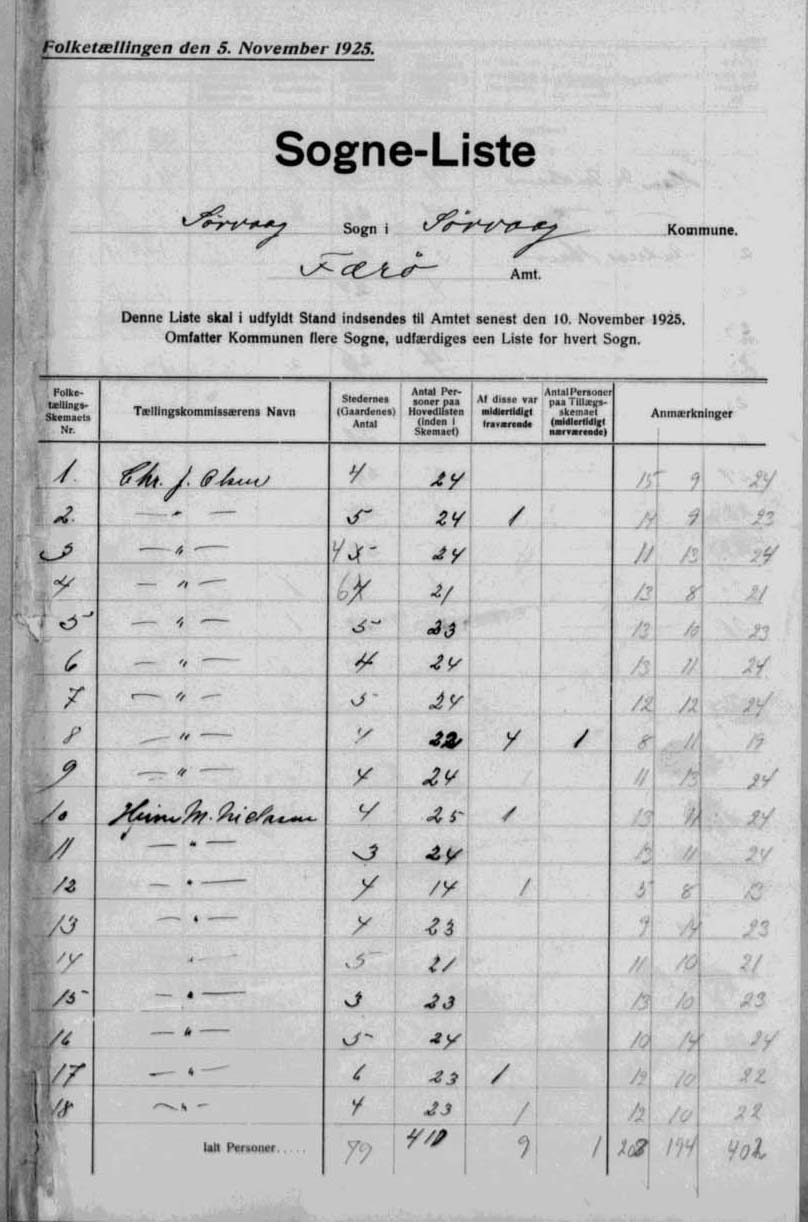 Folketællingen den 5. November 1925.
Sogne-Liste
Sørvaag Sogn i Sørvaag Kommune.
Færø Amt.
Denne Liste skal i udfyldt Stand indsendes til Amtet senest den 10. November 1925.
Omfatter Kommunen flere Sogne, udfærdiges een Liste for hvert Sogn.
Folketællings-Skemaets Nr. Tællingskommissærens Navn Stedernes (Gaardenes) Antal Antal Personer paa Hovedlisten (inden i Skemaet) Af disse var midlertidigt fraværende Antal Personer paa Tillægsskemaet (midlertidigt nærværende) Anmærkninger
1. Chr. J. Olsen 4 24 15 9 24
2. — " — 5 24 1 14 9 23
3 — " — 4 24 11 13 24
4 — " — 6 21 13 8 21
5 — " — 5 23 13 10 23
6 — " — 4 24 13 11 24
7 — " — 5 24 12 12 24
8 — " — 4 22 4 1 8 11 19
9 — " — 4 24 11 13 24
10 M. Nielsen 4 25 1 13 11 24
11 — " — 3 24 13 11 24
12 — " — 4 14 1 5 8 13
13 — " — 4 23 9 14 23
14 — " — 5 21 11 10 21
15 — " — 3 23 13 10 23
16 — " — 5 24 10 14 24
17 — " — 6 23 1 12 10 22
18 — " — 4 23 1 12 10 22
Ialt Personer..... 79 410 9 1 208 194 402